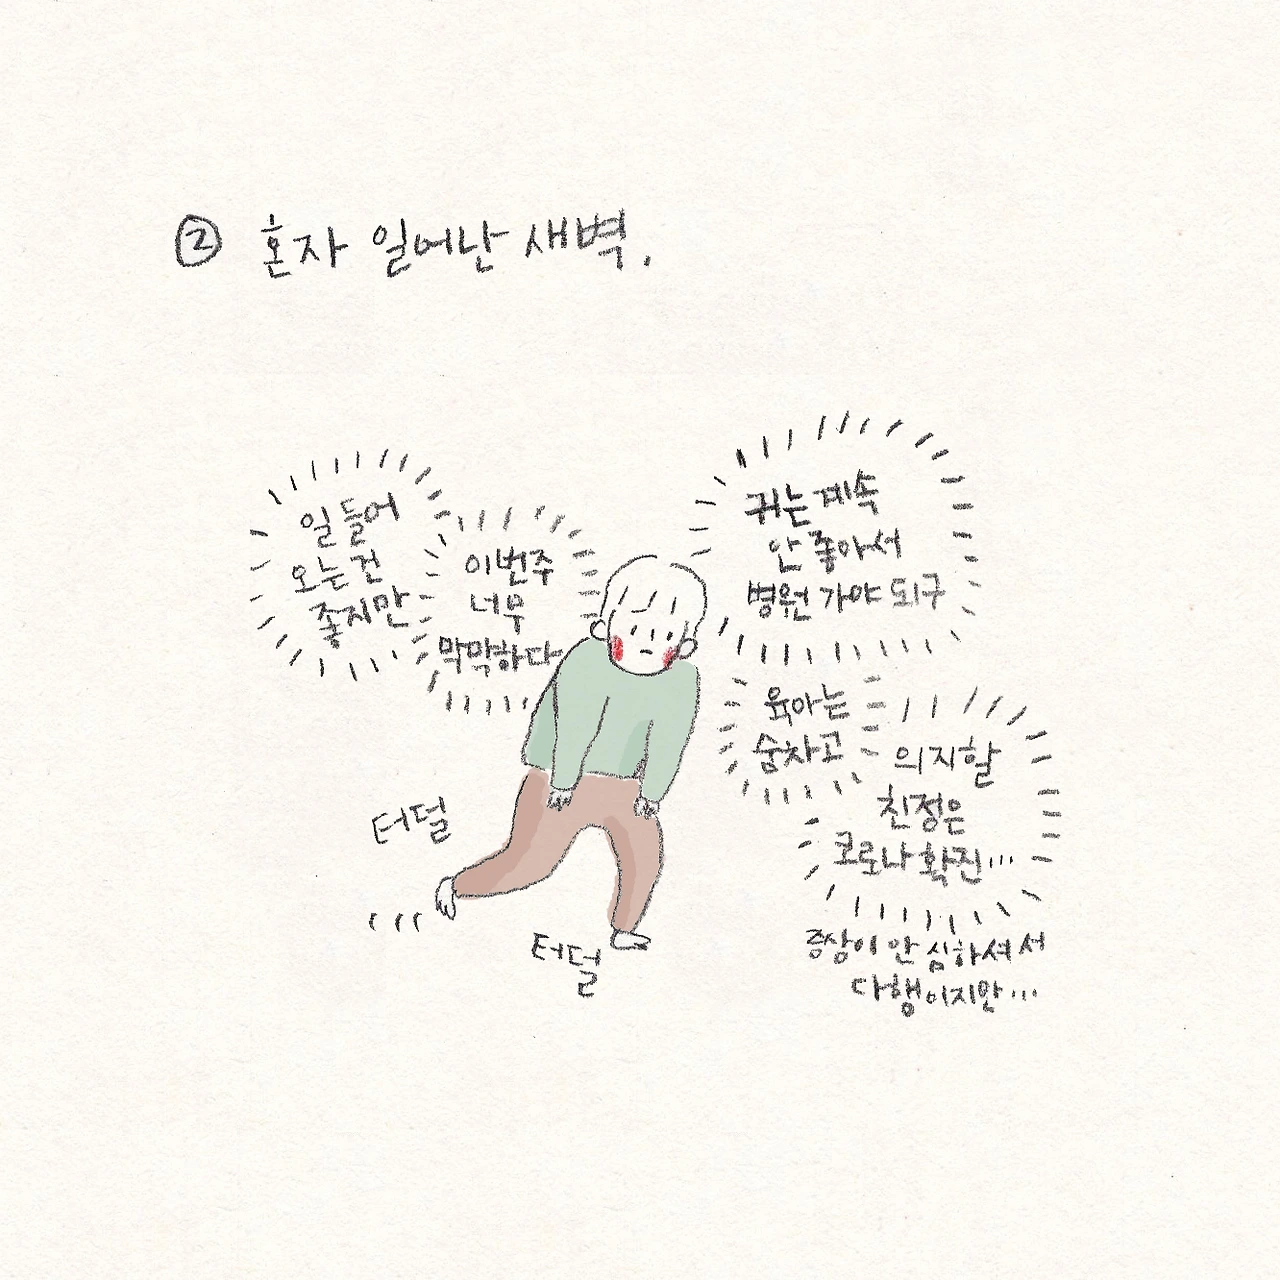 ② 혼자 일어난 새벽.
일 들어
오는 건
좋지만
이번주
너무
막막하다
귀는 계속
안 좋아서
병원 가야 되구
육아는
숨차고
의지할
친정은
코로나 확진...
증상이 안 심하셔서
다행이지만...
터덜
터덜